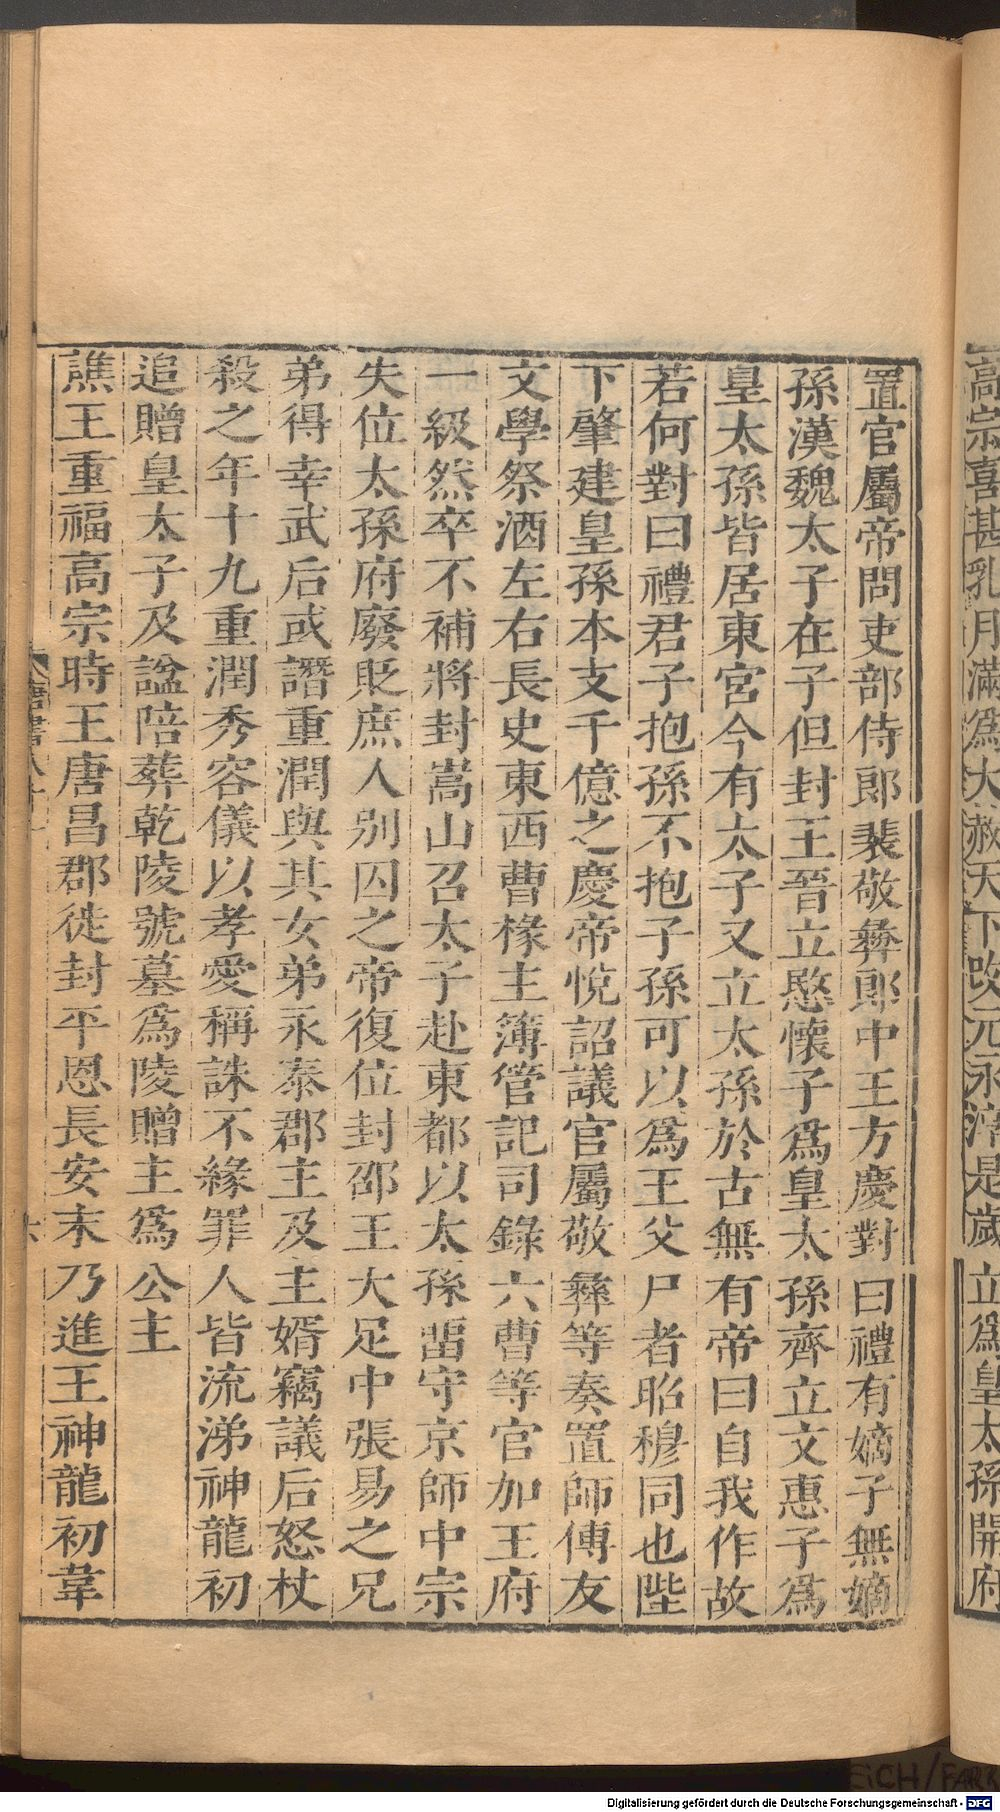 高宗喜甚乳月滿爲大赦天下改元永淳是歲立爲皇太孫開府
置官屬帝問吏部侍郎裴敬彝郎中王方慶對曰禮有嫡子無嫡
孫漢魏太子在子但封王晉立愍懷子爲皇太孫齊立文惠子爲
皇太孫皆居東宮今有太子又立太孫於古無有帝曰自我作故
若何對曰禮君子抱孫不抱子孫可以爲王父尸者昭穆同也陛
下肇建皇孫本支千億之慶帝悅詔議官屬敬彝等奏置師傅友
文學祭酒左右長史東西曹椽主簿管記司錄六曹等官加王府
一級然卒不補將封嵩山召太子赴東都以太孫畱守京師中宗
失位太孫府廢貶庶人别囚之帝復位封邵王大足中張易之兄
弟得幸武后或譖重潤與其女弟永泰郡主及主婿竊議后怒杖
殺之年十九重潤秀容儀以孝愛稱誅不緣罪人皆流涕神龍初
追贈皇太子及諡陪葬乾陵號墓爲陵贈主爲公主
譙王重福高宗時王唐昌郡徙封平恩長安末乃進王神龍初韋
唐書八十一
六
Digitalisierung gefördert durch die Deutsche Forschungsgemeinschaft - DFG